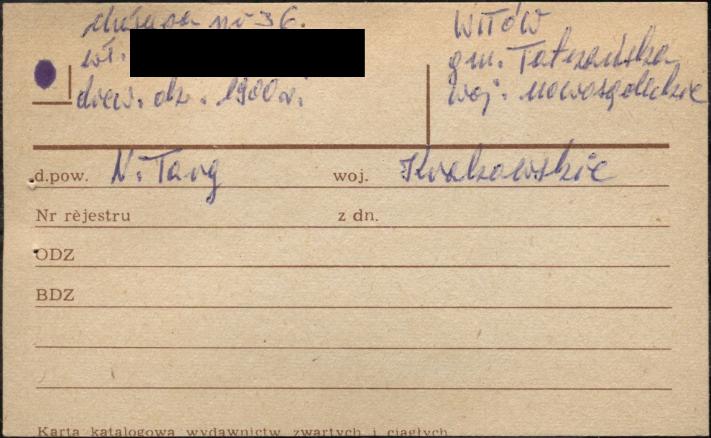 chałupa nr 36.
wł.
drew. ok. 1900 r.
WITÓW
gm. Tatrzańska
woj. nowosądeckie
d.pow. N. Targ woj. Krakowskie
Nr rejestru z dn.
ODZ
BDZ
Karta katalogowa wydawnictw zwartych i ciągłych